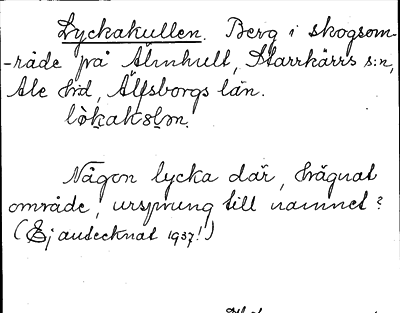 Lyckakullen. Berg i skogsom-
-råde på Älmhult, Starrkärrs s:n,
Ale hd, Älfsborgs län.
Någon lycka där, hägnat
område, ursprung till namnet?
(Ej antecknat 1937!)